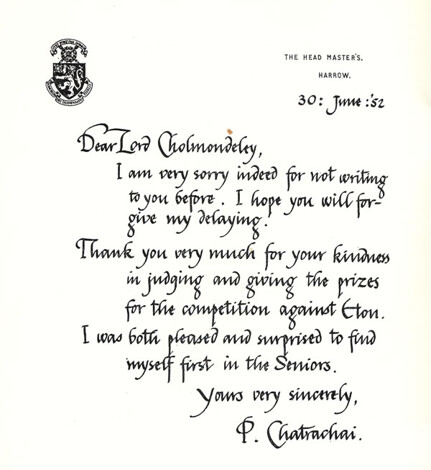 THE HEAD MASTER'S,
HARROW.
30: June :'52
Dear Lord Cholmondeley,
I am very sorry indeed for not writing
to you before. I hope you will for-
give my delaying.
Thank you very much for your kindness
in judging and giving the prizes
for the competition against Eton.
I was both pleased and surprised to find
myself first in the Seniors.
Yours very sincerely,
P. Chatrachai.